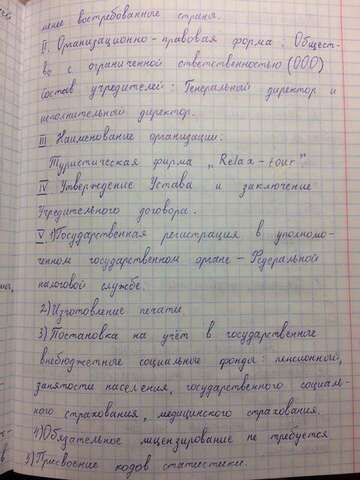 нение востребованное страна.
II. Организационно-правовая форма. Общест-
во с ограниченной ответственностью (ООО)
Состав учредителей: Генеральный директор и
исполнительный директор.
III Наименование организации.
Туристическая фирма „Relax-tour".
IV Утверждение Устава и заключение
Учредительного договора.
V 1) Государственная регистрация в уполномо-
ченном государственном органе - Федеральной
налоговой службе.
2) Изготовление печати
3) Постановка на учёт в государственное
внебюджетные социальное фонды: пенсионный,
занятости населения, государственного социаль-
ного страхования, медицинского страхования.
4) Обязательное лицензирование не требуется
5) Присвоение кодов статистики.